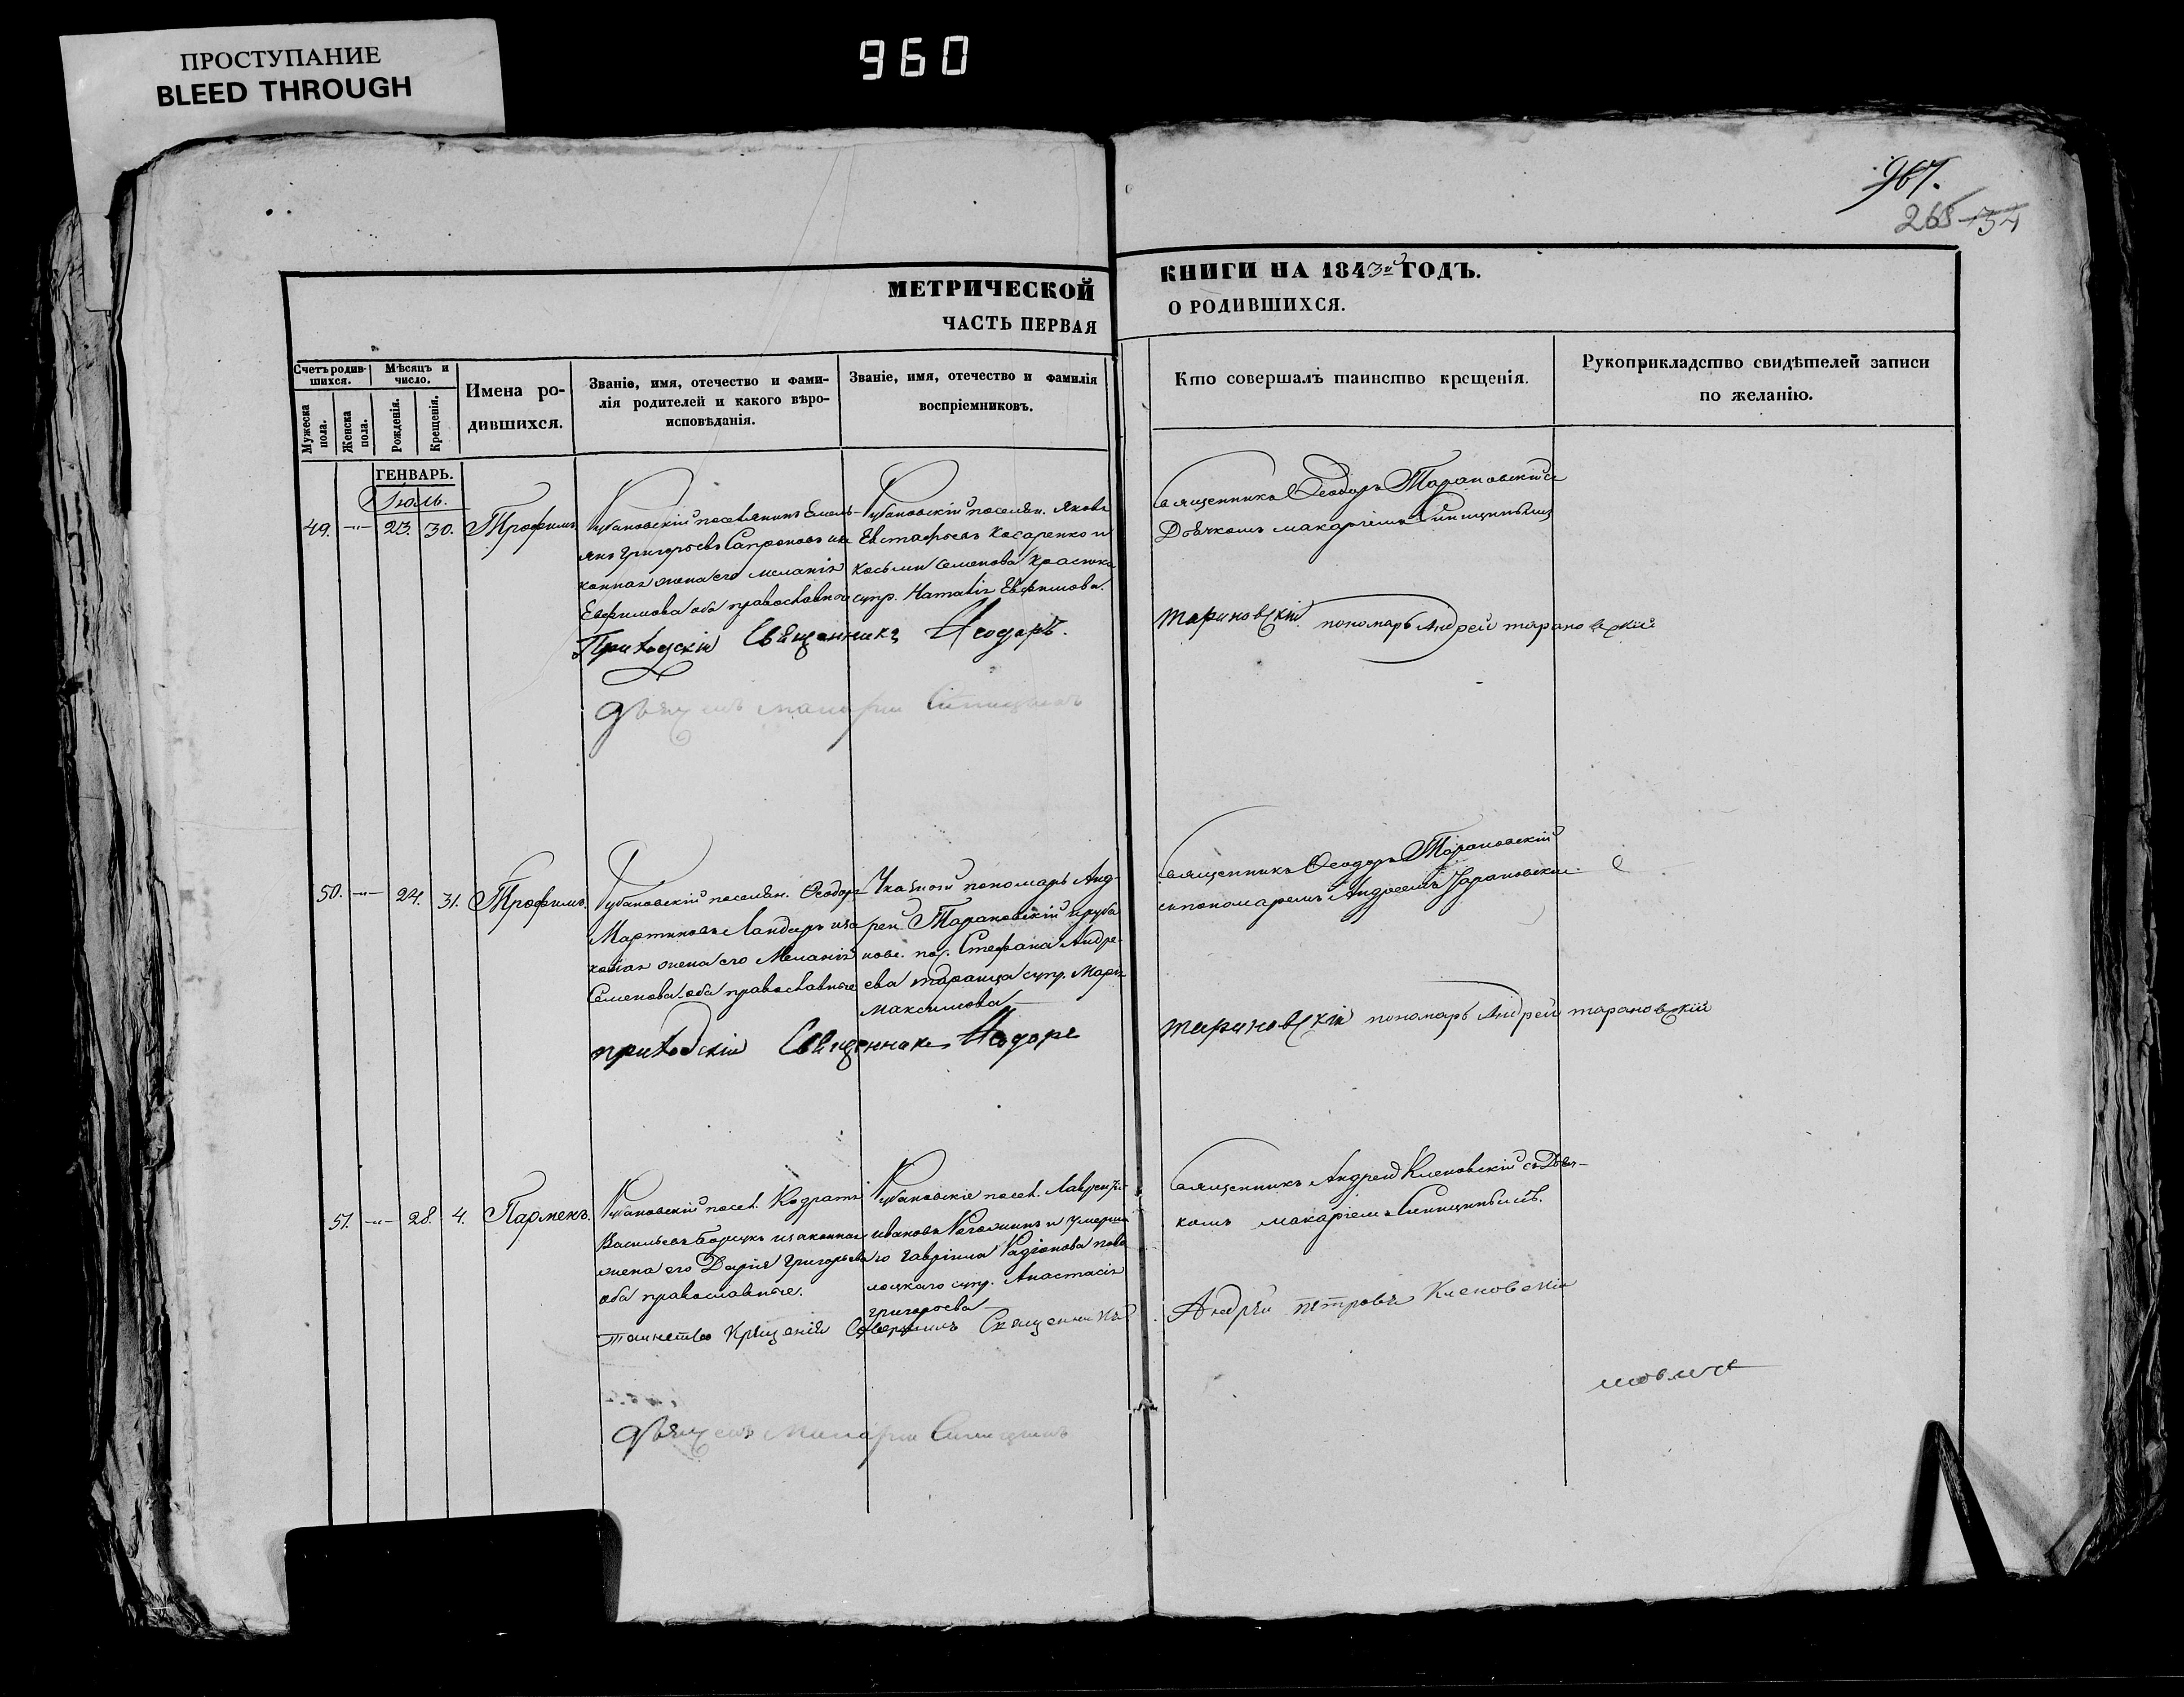 ПРОСТУПАНИЕ
BLEED THROUGH
960
967.
265
МЕТРИЧЕСКОЙ
ЧАСТЬ ПЕРВАЯ
КНИГИ НА 1843й ГОДЪ.
О РОДИВШИХСЯ.
Счетъ родив-
шихся.
Мужеска
пола.
Женска
пола.
Мѣсяцъ и
число.
Рожденія.
Крещенія.
Имена ро-
дившихся.
Званіе, имя, отечество и фами-
лія родителей и какого вѣро-
исповѣданія.
Званіе, имя, отечество и фамилія
воспріемниковъ.
Кто совершалъ таинство крещенія.
Рукоприкладство свидѣтелей записи
по желанію.
ГЕНВАРЬ.
Іюль.
49. -"- 23. 30. Трофимъ
поселянинъ Емель-
янъ Григорьевъ Сапроновъ и за
конная жена его Меланія
Евфимова оба православные
поселян. Яковъ
Евстафьевъ Косаренко и
Косьмы Семенова
супр. Наталія Евфимова.
Священникъ Ѳеодоръ Тарановскій съ
Дьячкомъ Макаріемъ Синицинымъ
Приходскій Священникъ Ѳеодоръ
Тарановскій пономарь Андрей Тарановскій
Дьячекъ Макарій Синицинъ
50. -"- 24. 31. Трофимъ.
поселян. Ѳеодоръ
Мартиновъ Ландарь и за
конная жена его Меланія
Семенова оба православные
пономарь Анд-
рей Тарановскій и руба
новс. пос. Стефана Андре-
ева супр. Марія
Максимова
Священникъ Ѳеодоръ Тарановскій
съ пономаремъ Андреемъ Тарановским.
приходскій Священникъ Ѳеодоръ
Тарановскій пономарь Андрей Тарановскій
51. -"- 28. 4. Парменъ.
посел. Кодратъ
Васильевъ и законная
жена его Дарія Григорьева
оба православные.
посел. Лаврентій
Ивановъ и умерша
го Гавріила Радіонова
супр. Анастасія
Григорьева
Священникъ Андрей Кленовскій съ Дьяч-
комъ Макаріемъ Синицинымъ.
таинство Крещенія Совершилъ Священникъ
Андрей Петровъ Кленовскій
Дьячекъ Макарій Синицинъ